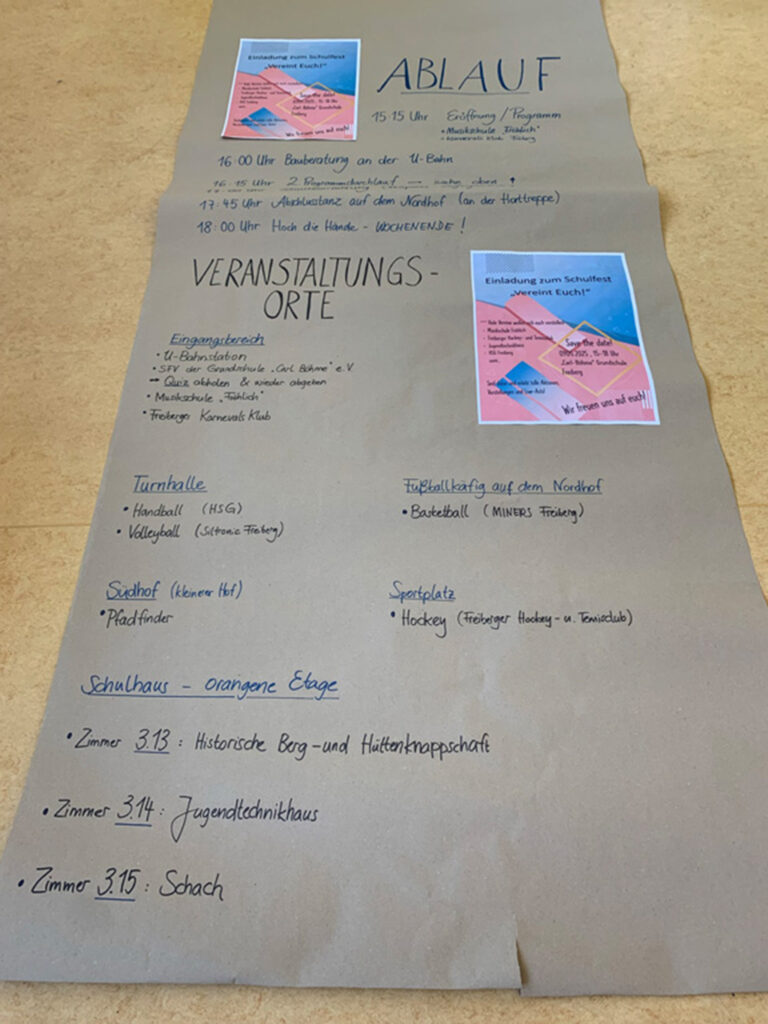 Einladung zum Schulfest
„Vereint Euch!"
Save the date!
"Carl-Böhme" Grundschule
Freiberg
Wir freuen uns auf euch!
ABLAUF
15:15 Uhr Eröffnung / Programm
• Musikschule "Fröhlich"
• Karnevals Klub Freiberg
16:00 Uhr Bauberatung an der U-Bahn
16:15 Uhr 2. Programmdurchlauf → siehe oben ↑
17:45 Uhr Abschlusstanz auf dem Nordhof (an der Horttreppe)
18:00 Uhr Hoch die Hände - WOCHENENDE!
VERANSTALTUNGS-
ORTE
Einladung zum Schulfest
„Vereint Euch!"
Viele Vereine wollen sich euch vorstellen:
- Musikschule Fröhlich
- Freiberger Hockey- und Tennisclub
- Jugendtechnikhaus
- HSG Freiberg
uvm.
Save the date!
09.05.2025, 15-18 Uhr
"Carl-Böhme" Grundschule
Freiberg
Seid dabei und erlebt tolle Aktionen,
Vorstellungen und Live-Acts!
Wir freuen uns auf euch!
Eingangsbereich
• U-Bahnstation
• SFV der Grundschule „Carl Böhme" e.V.
→ Quiz abholen & wieder abgeben
• Musikschule „Fröhlich"
• Freiberger Karnevals Klub
Turnhalle
• Handball (HSG)
• Volleyball (Siltronic Freiberg)
Fußballkäfig auf dem Nordhof
• Basketball (MINERS Freiberg)
Südhof (kleinerer Hof)
• Pfadfinder
Sportplatz
• Hockey (Freiberger Hockey- u. Tennisclub)
Schulhaus - orangene Etage
• Zimmer 3.13 : Historische Berg- und Hüttenknappschaft
• Zimmer 3.14 : Jugendtechnikhaus
• Zimmer 3.15 : Schach